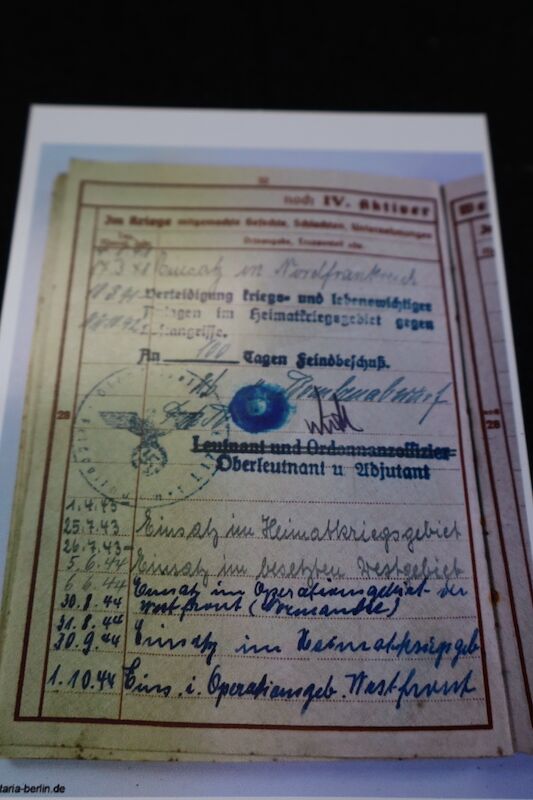 noch IV. Aktiver
Im Kriege mitgemachte Gefechte, Schlachten, Unternehmungen
Ortsangabe, Truppenteil etc.
Einsatz in Nordfrankreich
Verteidigung kriegs- und lebenswichtiger
Anlagen im Heimatkriegsgebiet gegen
Luftangriffe.
An 100 Tagen Feindbeschuß.
Leutnant und Ordonnanzoffizier
Oberleutnant u Adjutant
28
28
1.4.43-
25.7.43 Einsatz im Heimatkriegsgebiet
26.7.43-
5.6.44 Einsatz im besetzten Westgebiet
6.6.44 Einsatz im Operationsgebiet der
30.8.44 Westfront (Normandie)
31.8.44
30.9.44 Einsatz im Heimatkriegsgeb
1.10.44 Eins. i. Operationsgeb. Westfront
taria-berlin.de